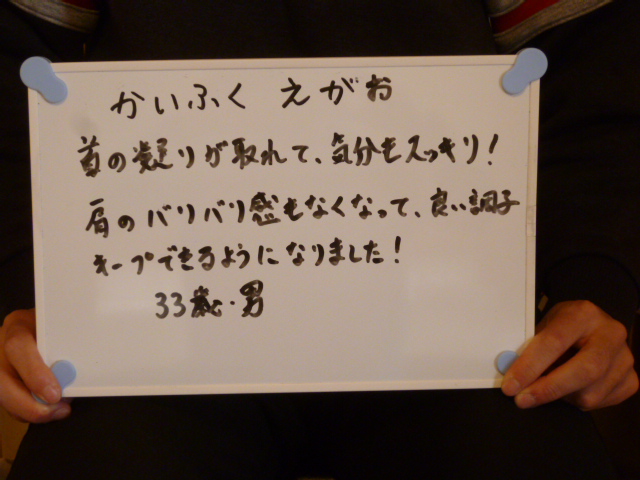 かいふく えがお
首の凝りが取れて、気分もスッキリ!
肩のバリバリ感もなくなって、良い調子
キープできるようになりました!
33歳・男